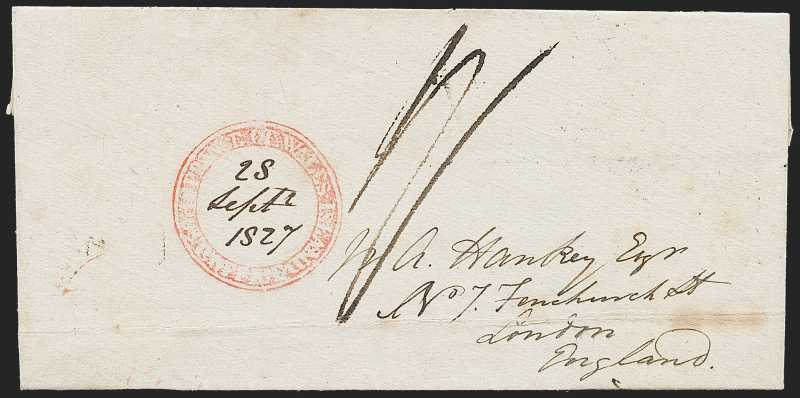 28
Septr
1827
W. A. Hankey Esqr
No 7. Fenchurch St
London
England.